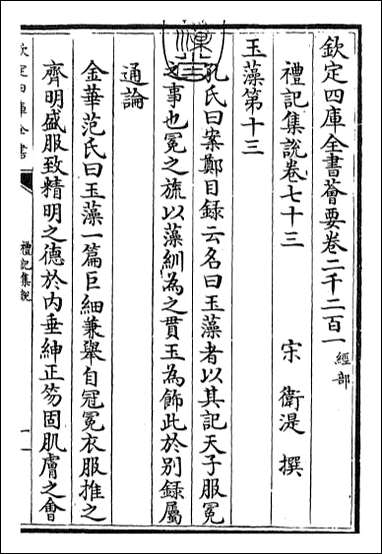 欽定四庫全書薈要卷二千二百一 經部
禮記集說卷七十三
宋 衛湜 撰
玉藻第十三
孔氏曰案鄭目錄云名曰玉藻者以其記天子服冕
之事也冕之旒以藻紃為之貫玉為飾此於別錄屬
通論
金華范氏曰玉藻一篇巨細兼舉自冠冕衣服推之
齊明盛服致精明之德於內垂紳正笏固肌膚之會
欽定四庫全書
禮記集說
一